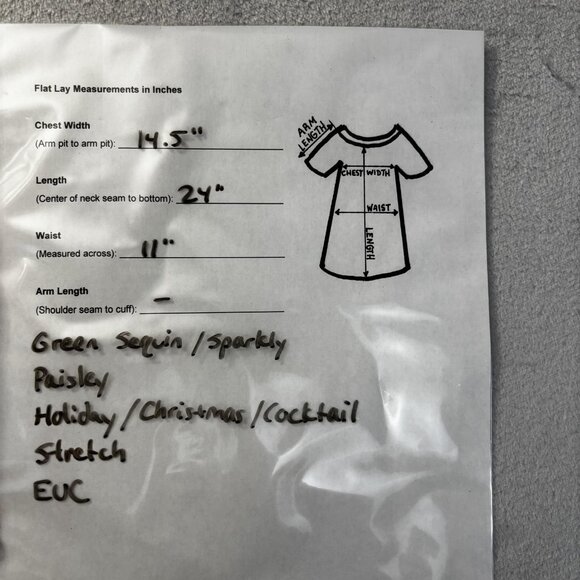 Flat Lay Measurements in Inches
Chest Width
(Arm pit to arm pit): 14.5"
Length
(Center of neck seam to bottom): 24"
Waist
(Measured across): 11"
Arm Length
(Shoulder seam to cuff): -
Green Sequin / Sparkly
Paisley
Holiday / Christmas / Cocktail
Stretch
EUC
ARM
LENGTH
CHEST WIDTH
WAIST
LENGTH